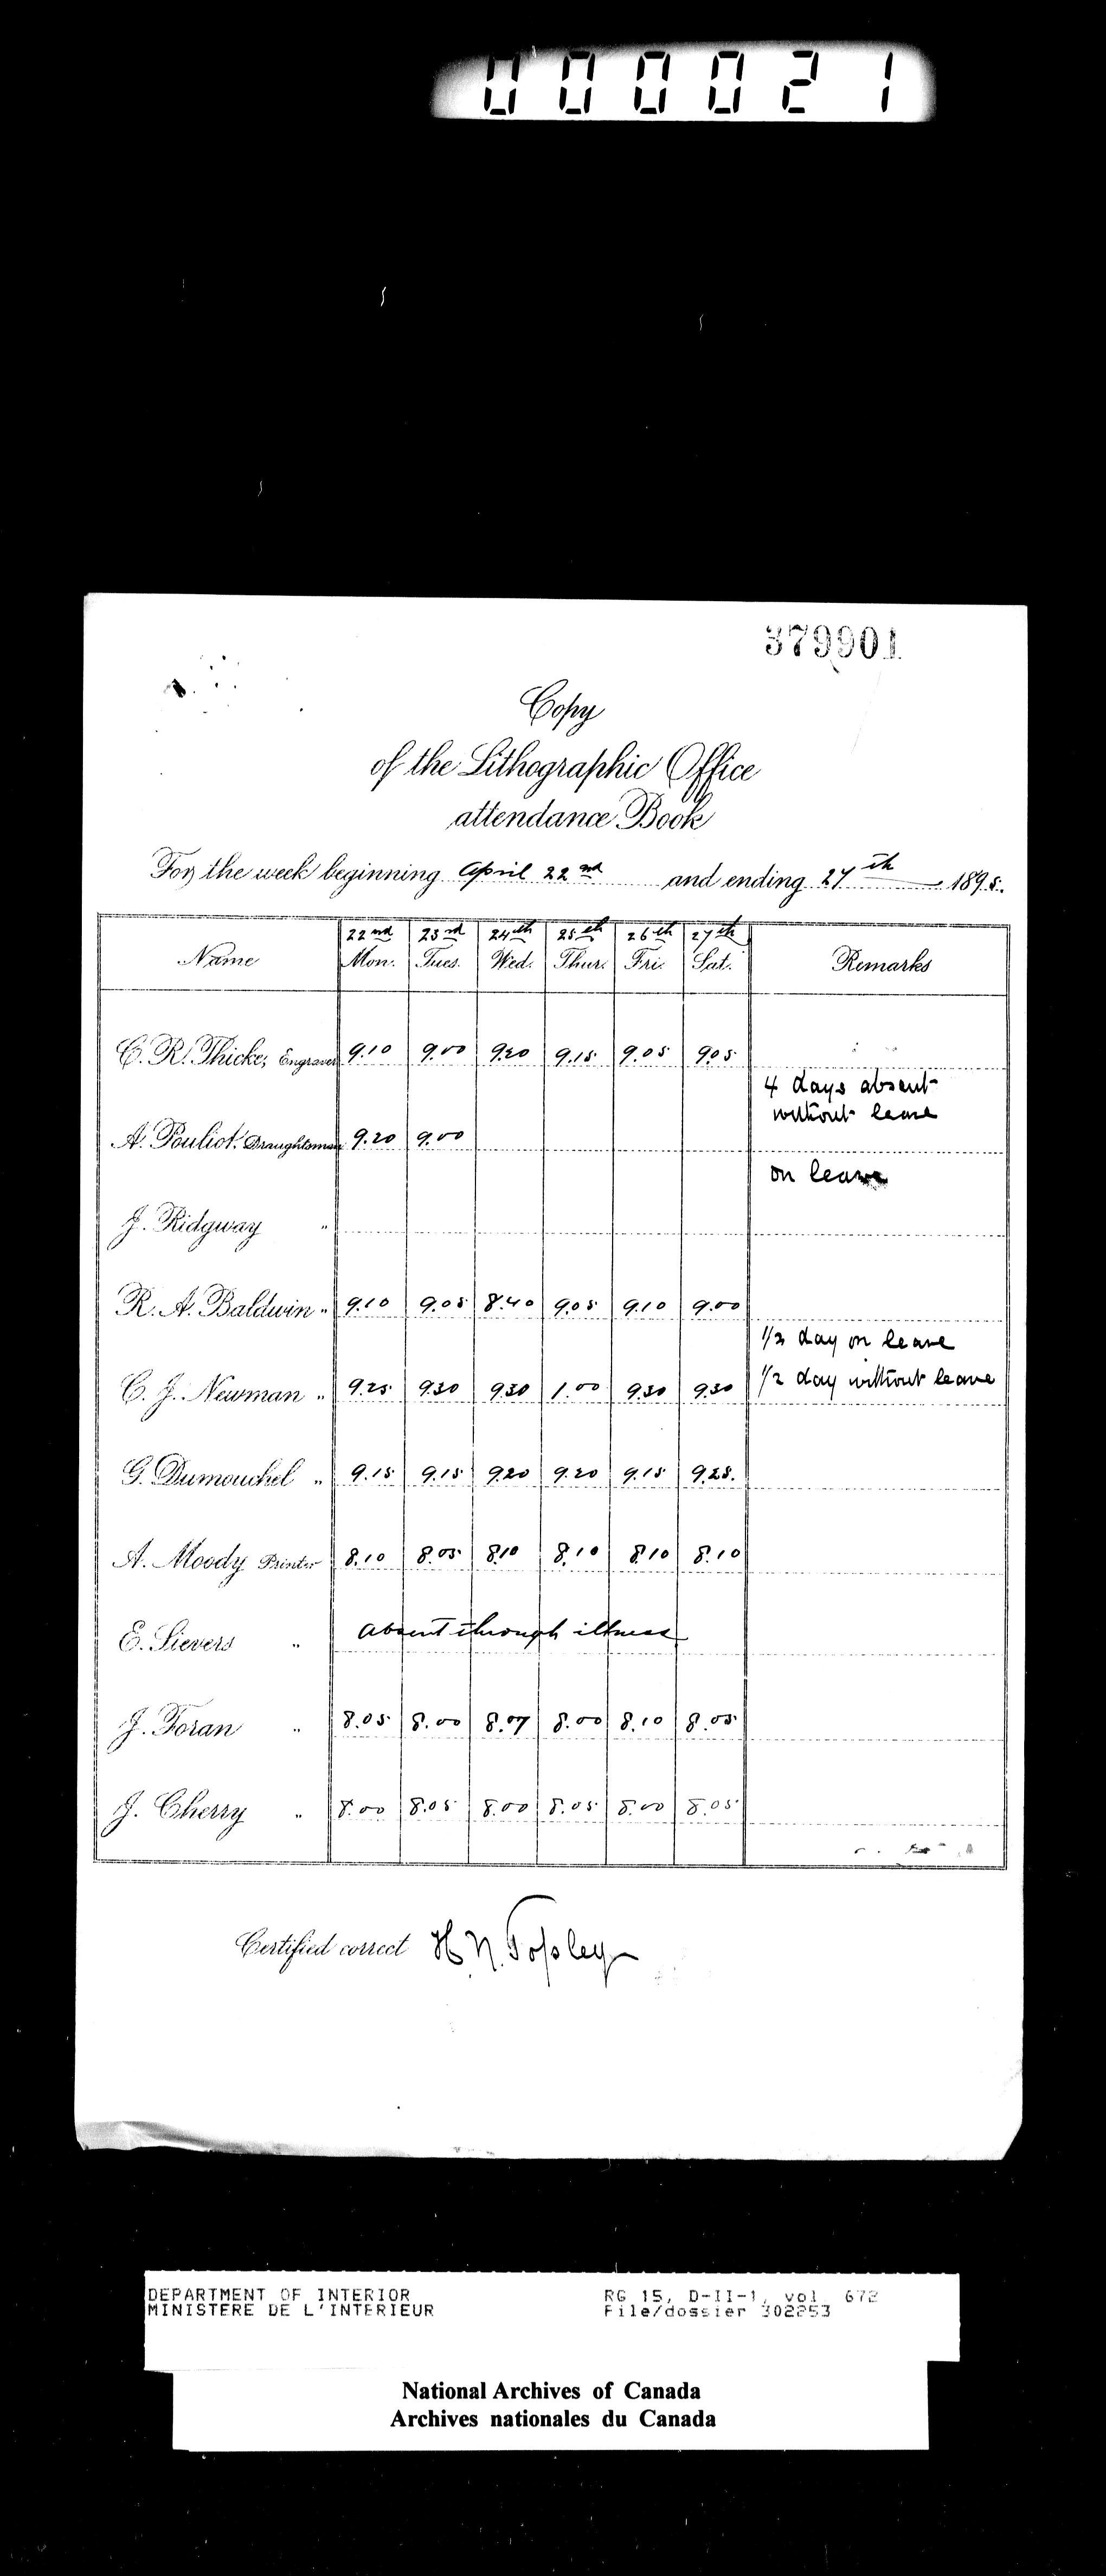 000021
379901
Copy
of the Lithographic Office
attendance Book
For the week beginning April 22nd and ending 27th 1895.
Name 22nd Mon. 23rd Tues. 24th Wed. 25th Thur. 26th Fri. 27th Sat. Remarks
C. R. Thicke, Engraver 9.10 9.00 9.20 9.15 9.05 9.05
4 days absent
without leave
A. Pouliot Draughtsman 9.20 9.00
on leave
J. Ridgway "
R. A. Baldwin " 9.10 9.05 8.40 9.05 9.10 9.00
1/2 day on leave
C. J. Newman " 9.25 9.30 9.30 1.00 9.30 9.30 1/2 day without leave
G. Dumouchel " 9.15 9.15 9.20 9.20 9.15 9.25.
A. Moody Printer 8.10 8.05 8.10 8.10 8.10 8.10
E. Sievers " Absent through illness
J. Foran " 8.05 8.00 8.07 8.00 8.10 8.05
J. Cherry " 8.00 8.05 8.00 8.05 8.00 8.05
Certified correct H. N. Topley
DEPARTMENT OF INTERIOR RG 15, D-II-1, vol 672
MINISTERE DE L'INTERIEUR File/dossier 302253
National Archives of Canada
Archives nationales du Canada